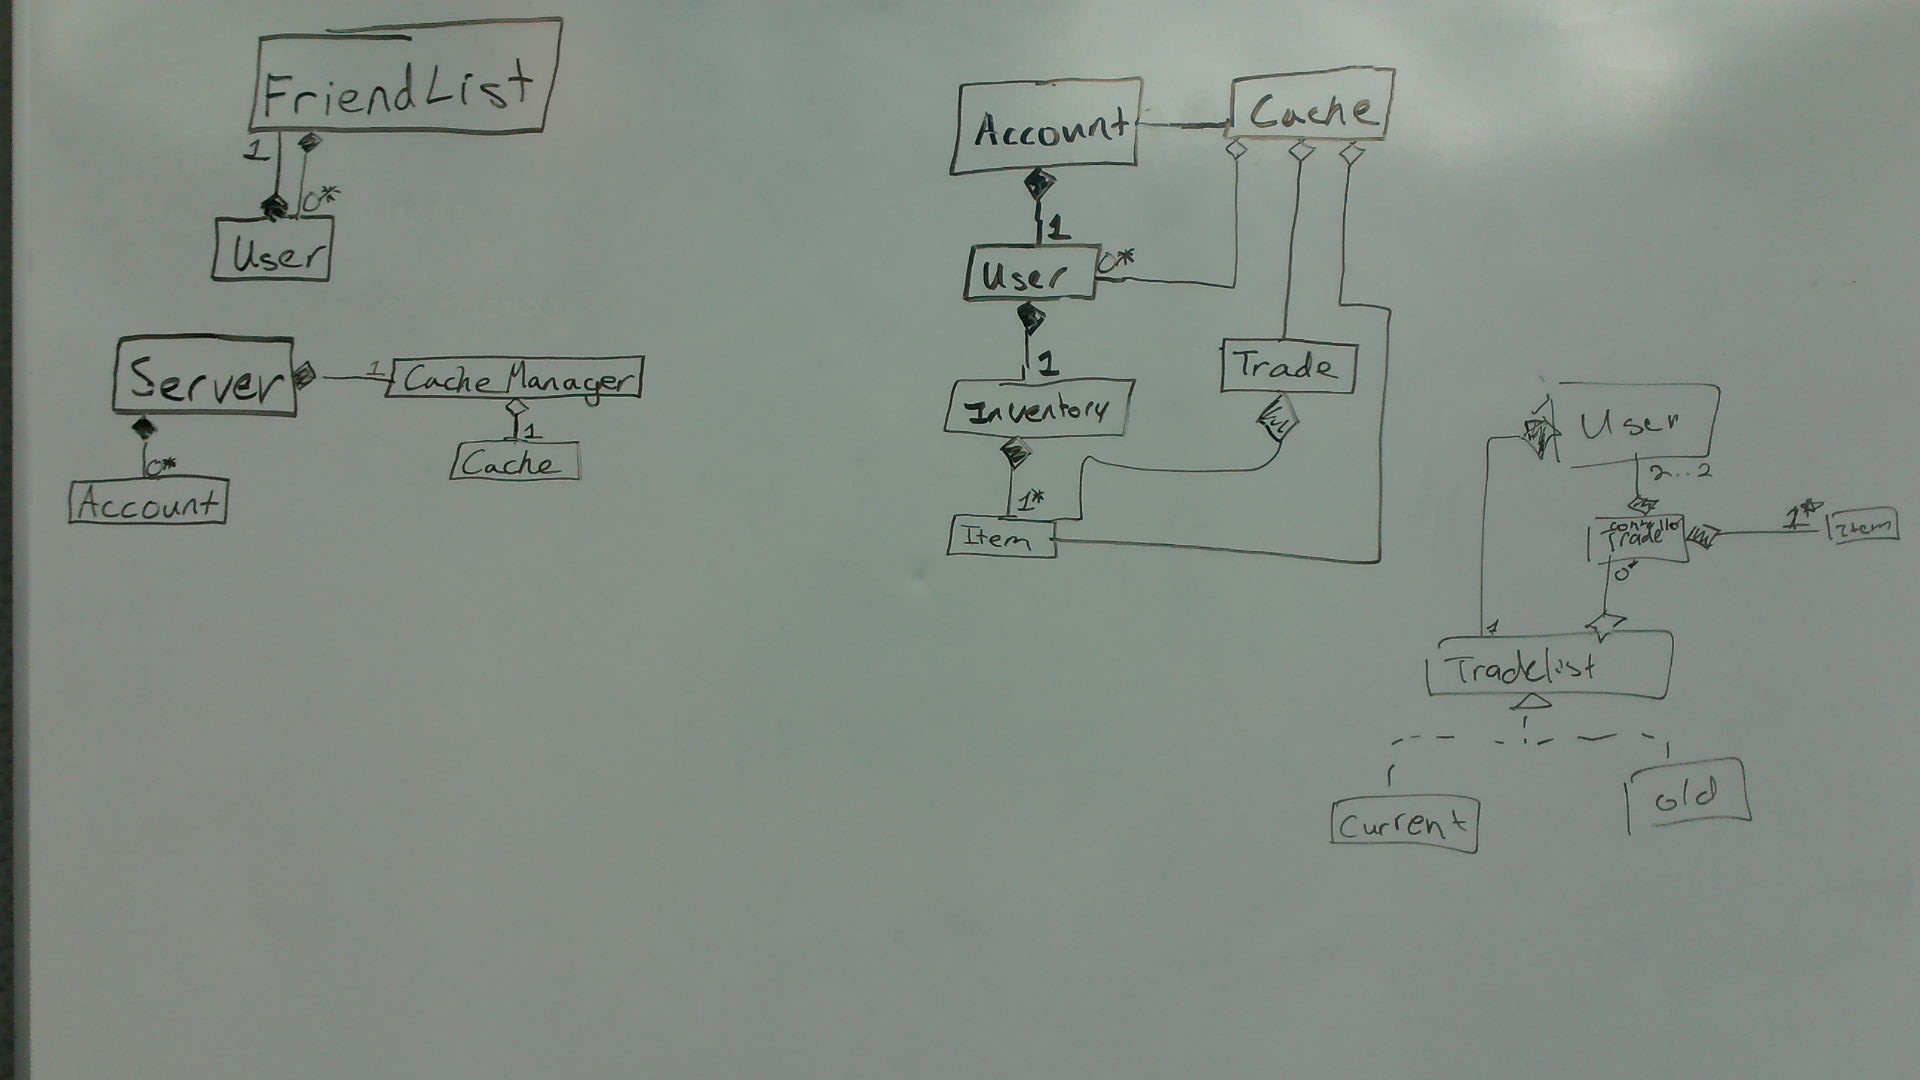 FriendList
1
0*
User
Server
1
Cache Manager
1
Cache
0*
Account
Account
Cache
1
User
0*
1
Inventory
Trade
1*
Item
User
2..2
Trade
1*
Item
0*
1
Tradelist
Current
old